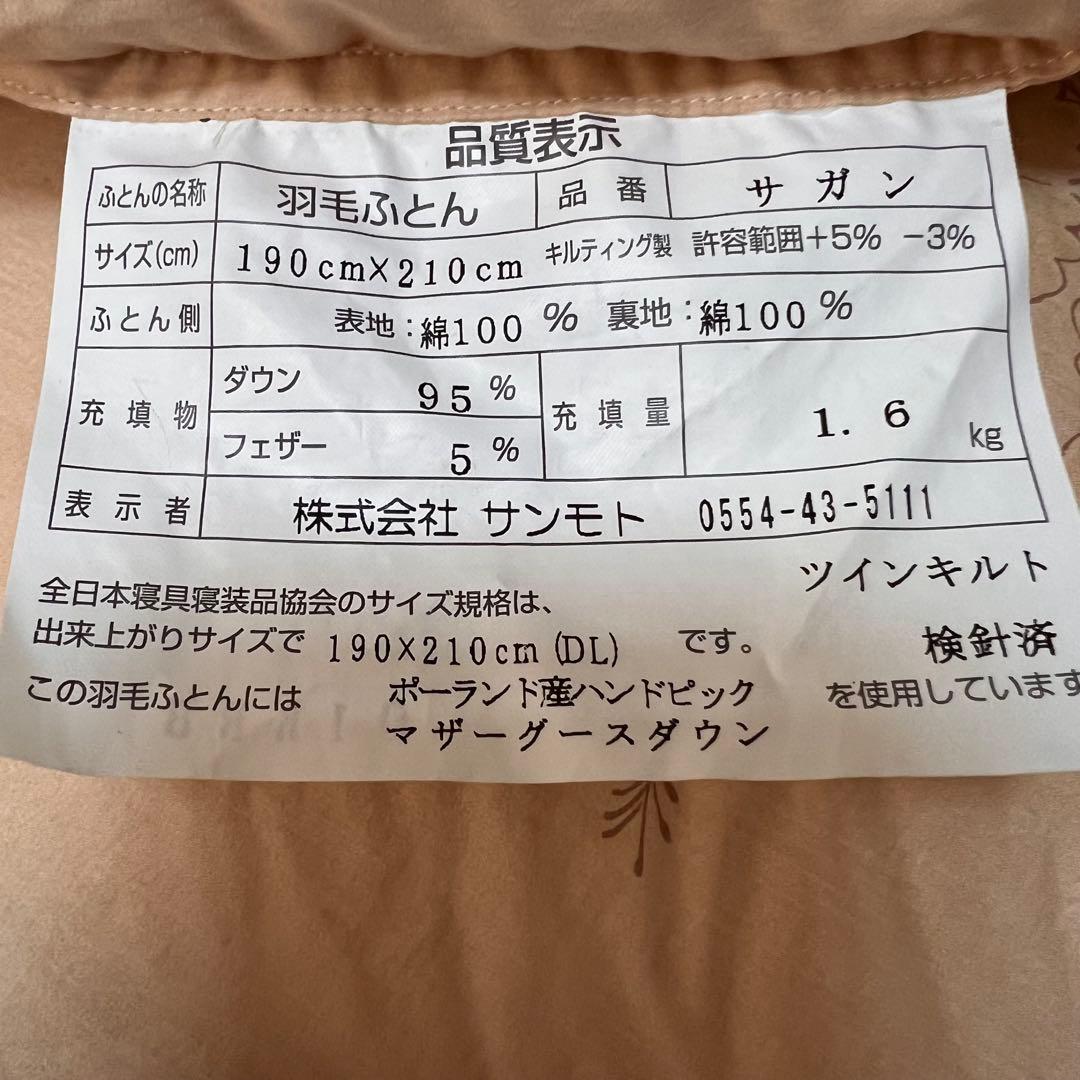 品質表示
ふとんの名称 羽毛ふとん 品番 サガン
サイズ(cm) 190cm×210cm キルティング製 許容範囲+5% -3%
ふとん側 表地:綿100% 裏地:綿100%
充填物 ダウン 95% 充填量 1.6kg
フェザー 5%
表示者 株式会社 サンモト 0554-43-5111
ツインキルト
全日本寝具寝装品協会のサイズ規格は、
出来上がりサイズで 190×210cm(DL) です。 検針済
この羽毛ふとんには ポーランド産ハンドピック を使用しています
マザーグースダウン